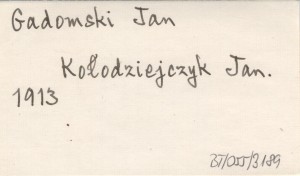 Gadomski Jan
Kołodziejczyk Jan.
1913
BT/OIT/3/89